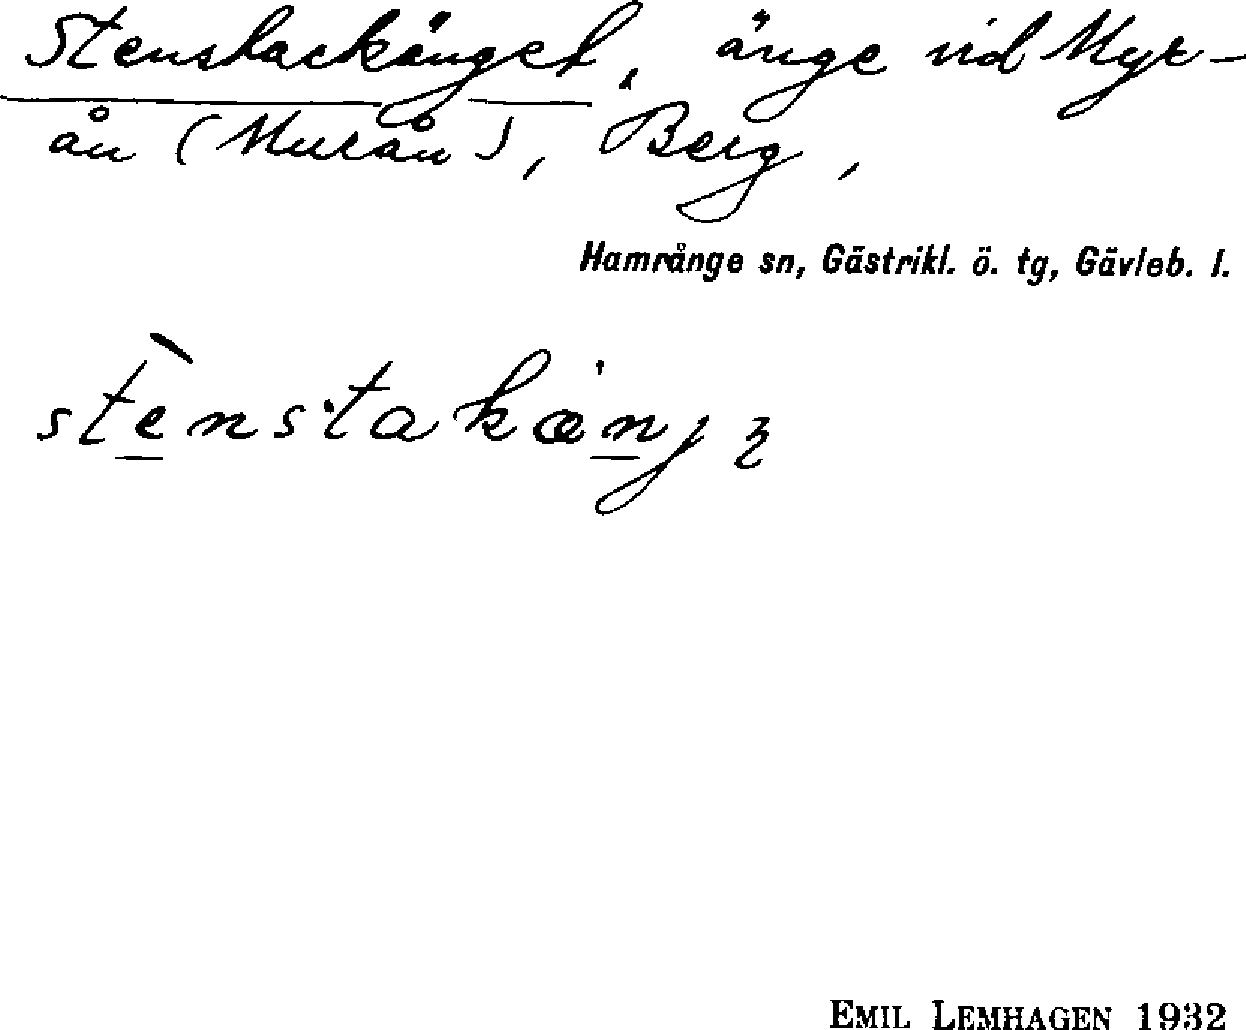 Stenstackänget, änge vid Myr-
ån (Murån), Berg,
Hamrånge sn, Gästrikl. ö. tg, Gävleb. l.
EMIL LEMHAGEN 1932